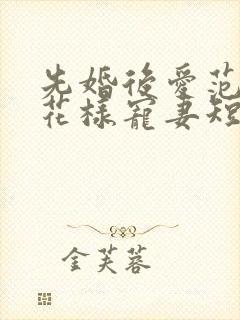 先婚後愛范
花樣寵妻短
金芙蓉